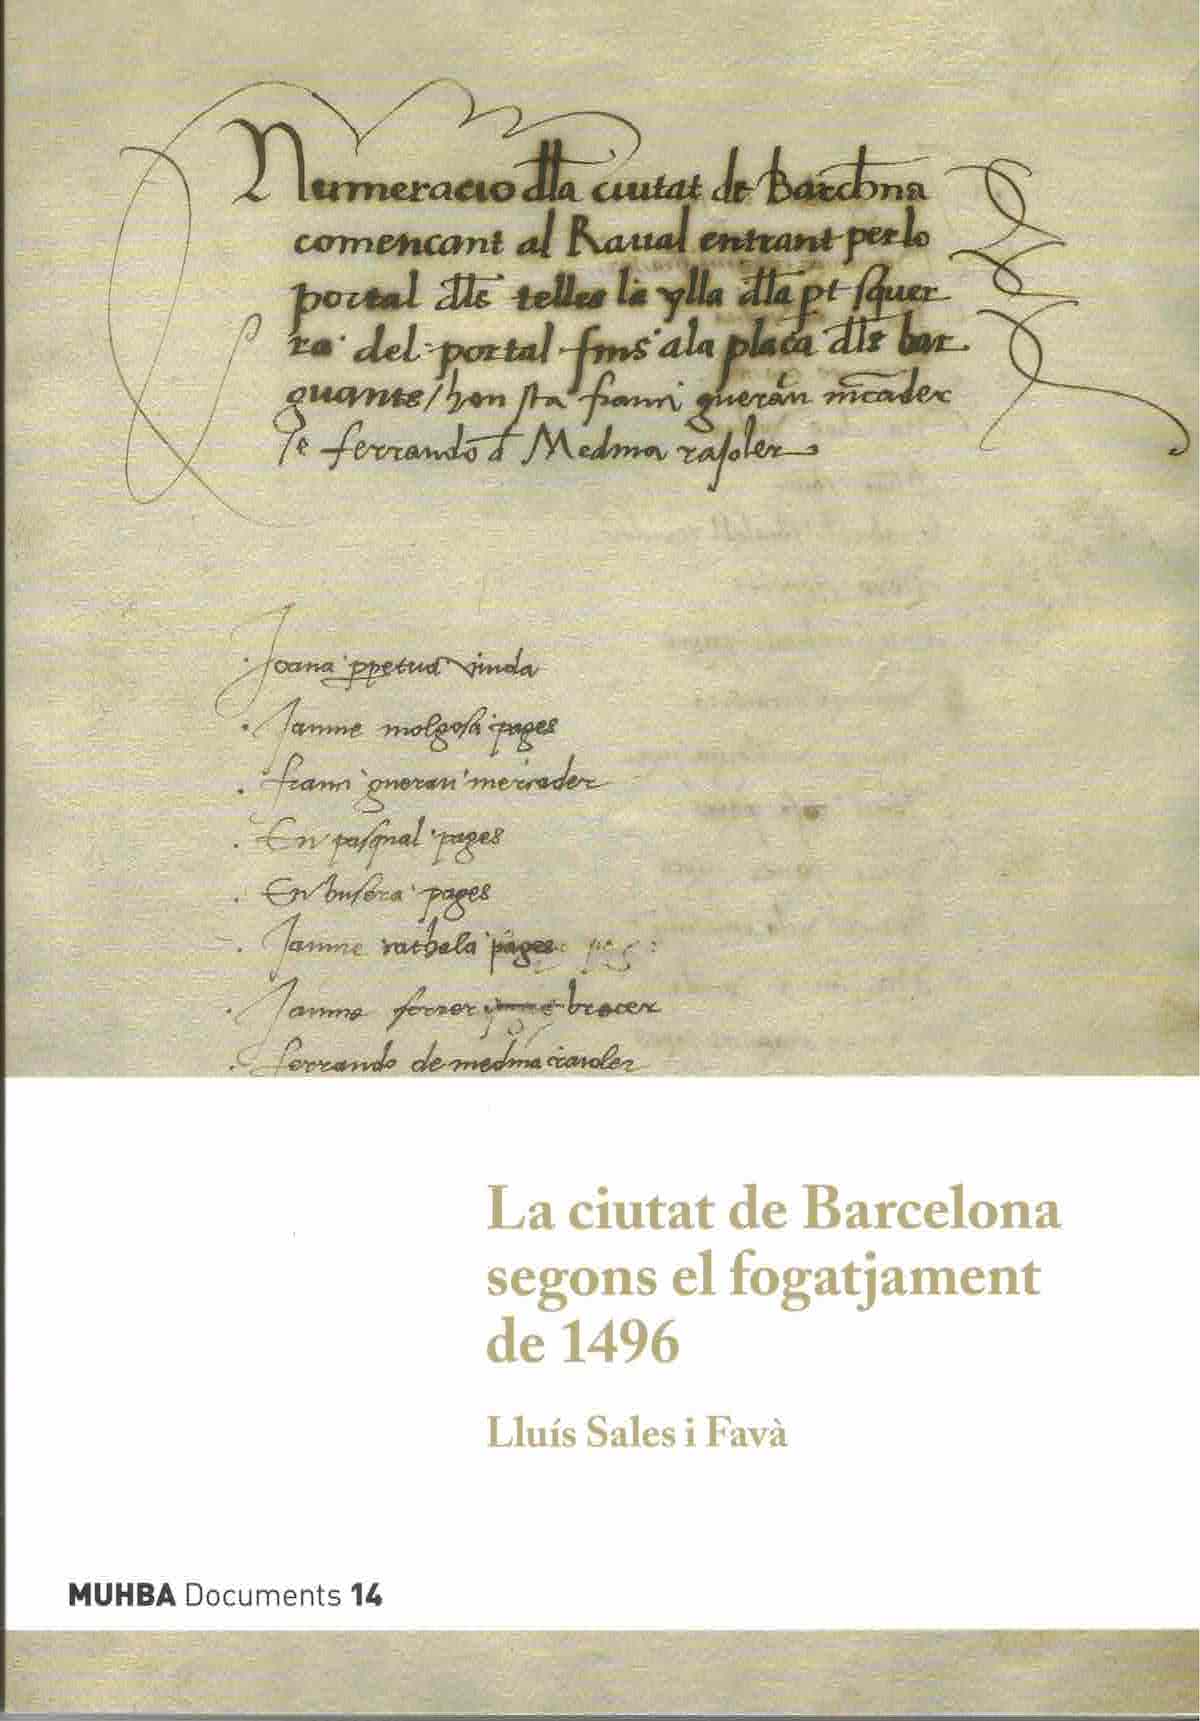 Numeracio dlla ciutat de Barchna
comencant al Raual entrant per lo
portal dlls tellers la ylla dlla pt squer
ra del portal fins ala placa dlls bar
guants / hon sta franci guerau mcader
e ferrando d Medina rasoler
Joana ppetua viuda
Jaume molgosa pages
franci guerau mercader
En pasqual pages
En pages
Jaume pages
Jaume ferrer brocer
ferrando de medina raioler
La ciutat de Barcelona
segons el fogatjament
de 1496
Lluís Sales i Favà
MUHBA Documents 14